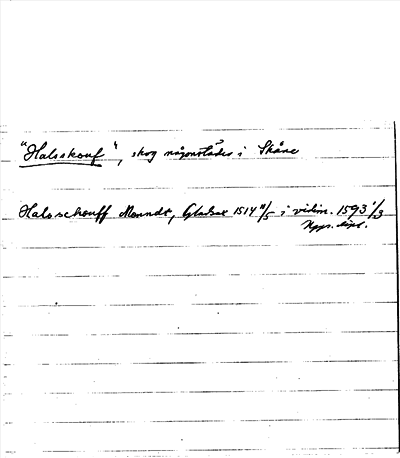 "Halsskouf", skog någonstädes i Skåne
Halsschouff Monndt, Gladsax 1514 11/5 i vidim. 1593 1/3